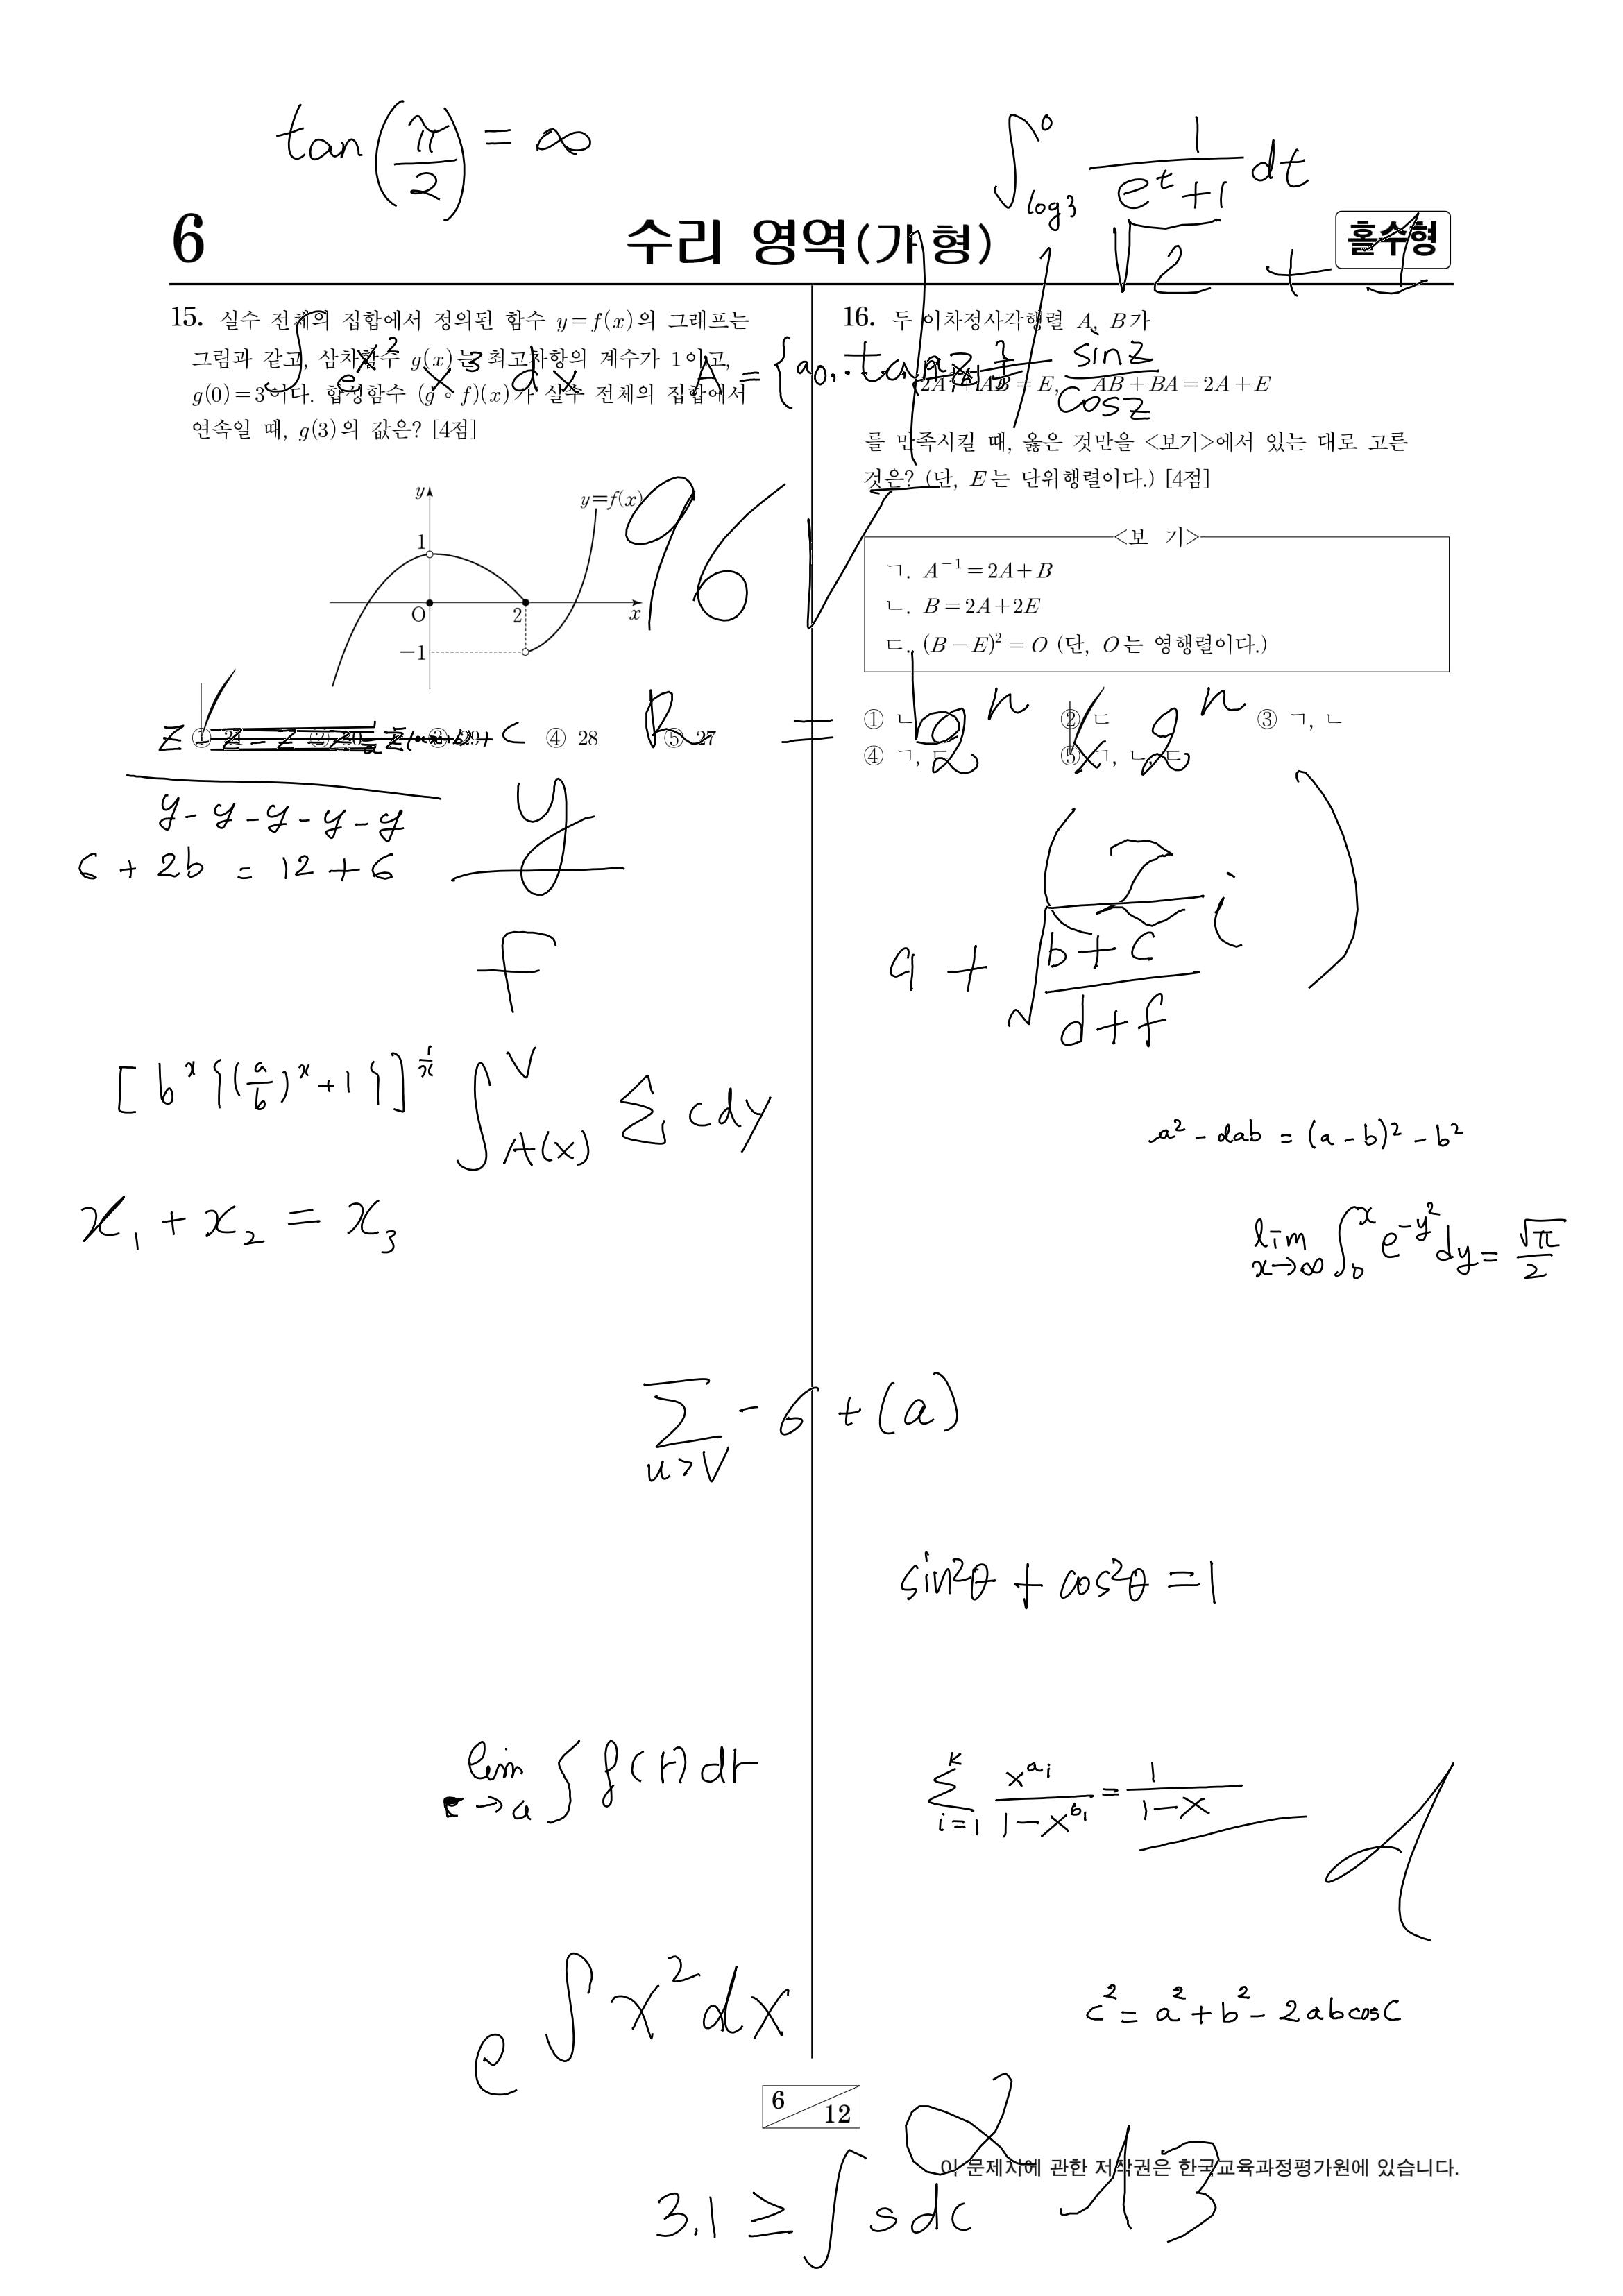 tan(π/2) = ∞
∫_{log3}^{0} 1/(e^t+1) dt
6
수리 영역(가형)
홀수형
√2 + 1
15. 실수 전체의 집합에서 정의된 함수 y=f(x)의 그래프는
그림과 같고, 삼차함수 g(x)는 최고차항의 계수가 1이고,
g(0)=3이다. 합성함수 (g∘f)(x)가 실수 전체의 집합에서
연속일 때, g(3)의 값은? [4점]
∫ e^{x^2} x^3 dx
y
y=f(x)
1
O
2
x
-1
96
④ 28
⑤ 27
y-y-y-y-y
6 + 2b = 12 + 6
y
f
[b^x{(a/b)^x+1}]^{1/x}
∫_{A(x)}^{V} Σ cdy
x_1 + x_2 = x_3
16. 두 이차정사각행렬 A, B가
sinz/cosz
AB+BA=2A+E
를 만족시킬 때, 옳은 것만을 <보기>에서 있는 대로 고른
것은? (단, E는 단위행렬이다.) [4점]
<보 기>
ㄱ. A^{-1}=2A+B
ㄴ. B=2A+2E
ㄷ. (B-E)^2=O (단, O는 영행렬이다.)
① ㄴ
② ㄷ
③ ㄱ, ㄴ
④ ㄱ, ㄷ
⑤ ㄱ, ㄴ, ㄷ
a + √((b+c)/(d+f)) i
a^2 - dab = (a-b)^2 - b^2
lim_{x→∞} ∫_0^x e^{-y^2} dy = √π/2
Σ_{u>V} - 6 + (a)
sin^2θ + cos^2θ = 1
lim ∫ f(r) dr
Σ_{i=1}^{k} x^{a_i}/(1-x^{b_i}) = 1/(1-x)
c^2 = a^2 + b^2 - 2abcosC
e^{∫x^2dx}
6
12
이 문제지에 관한 저작권은 한국교육과정평가원에 있습니다.
3.1 ≥ ∫sdc